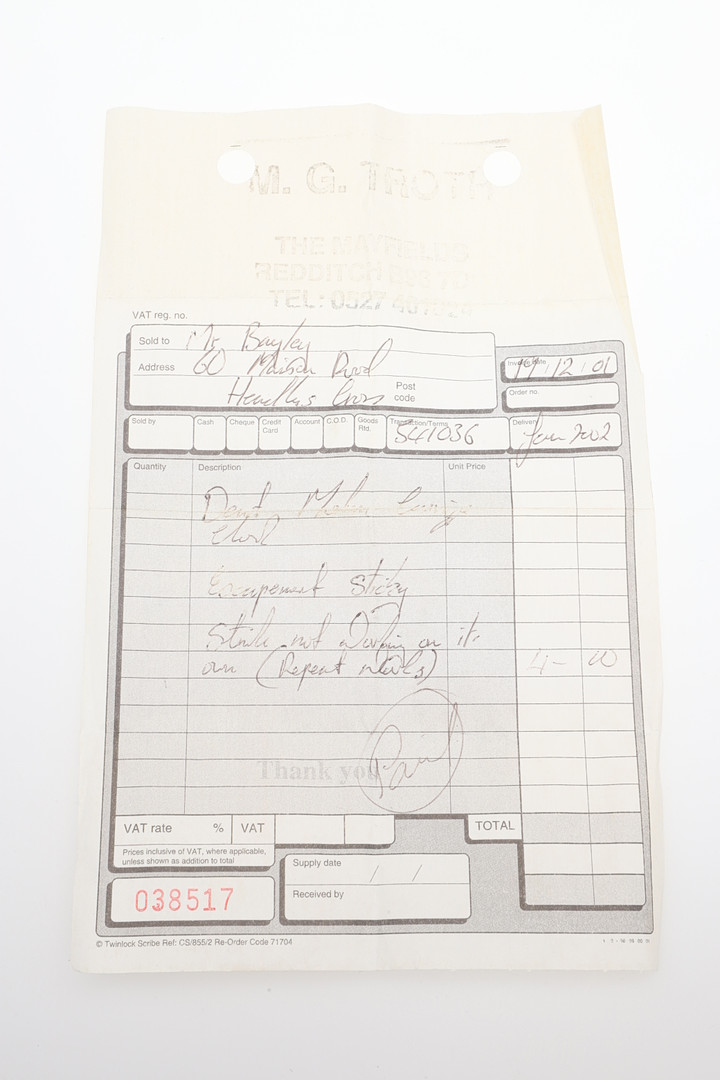 M. G. TROTH
THE MAYFIELDS
REDDITCH B98 7D
TEL: 0527
VAT reg. no.
Sold to Mr Bayley
Address 60 Road
Cross
Post code
Invoice date 19/12/01
Order no.
Sold by
Cash
Cheque
Credit Card
Account
C.O.D.
Goods Rtd.
Transaction/Terms 541036
Delivery Jan 2002
Quantity
Description
Unit Price
Dent
Clock
Escapement Sticky
Strike not Working on its
own (Repeat works) 4-00
Paid
Thank you
VAT rate %
VAT
TOTAL
Prices inclusive of VAT, where applicable,
unless shown as addition to total
Supply date / /
Received by
038517
© Twinlock Scribe Ref: CS/855/2 Re-Order Code 71704